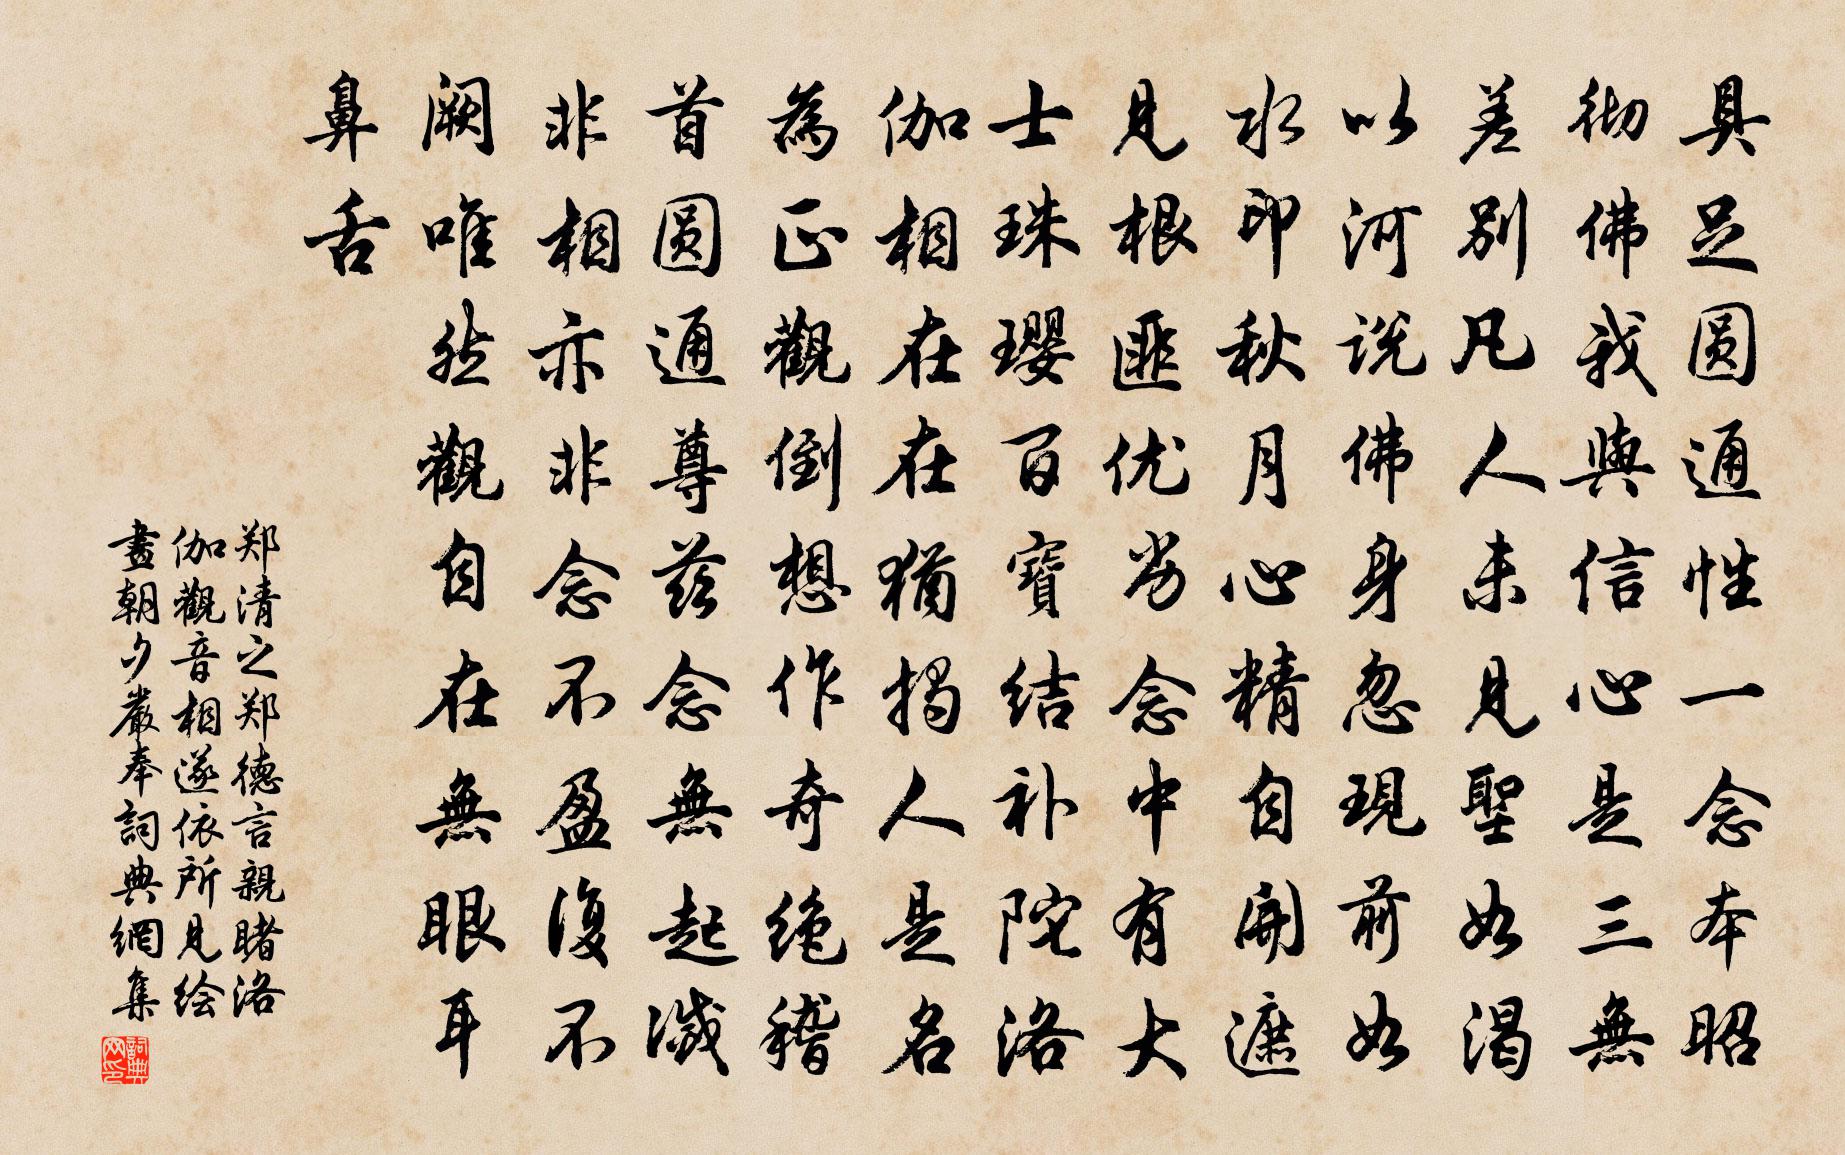 具足圆通性一念本昭
彻佛我與信心是三無
差别凡人未見聖如渴
以河说佛身忽現前如
水印秋月心精自開遮
見根匪优劣念中有大
士珠璎百寶结补陀洛
伽相在在犹揭人是名
為正觀倒想作奇绝稽
首圆通尊兹念無起滅
非相亦非念不盈復不
阙唯然觀自在無眼耳
鼻舌
郑清之郑德言親睹洛
伽觀音相遂依所見绘
畫朝夕嚴奉詞典網集
詞典网印